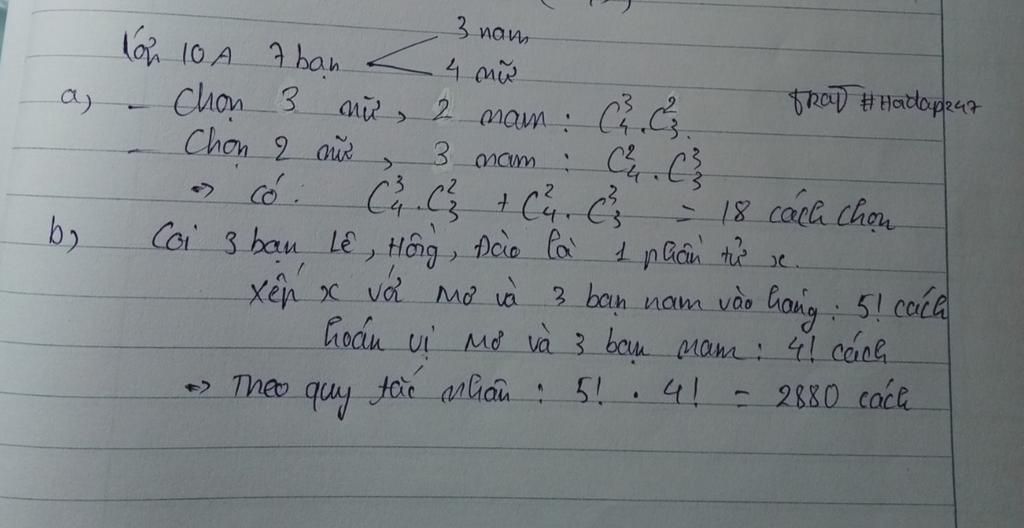 Lớp 10A 7 bạn < 3 nam
4 nữ
a, - Chọn 3 nữ, 2 nam : C₄³.C₃².
FRAT #Hoidap247
- Chọn 2 nữ, 3 nam : C₄².C₃³
=> Có : C₄³.C₃² + C₄².C₃³ = 18 cách chọn
b, Coi 3 bạn Lê, Hồng, Đào là 1 phần tử x.
Xếp x với Mơ và 3 bạn nam vào hàng : 5! cách
hoán vị Mơ và 3 bạn nam : 4! cách
=> Theo quy tắc nhân : 5! . 4! = 2880 cách